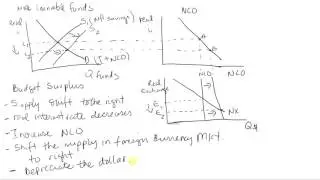 Loanable funds
real
NCO
S₁ (Ntl savings)
S₂
D (I + NCO)
Q funds
Real Exchange
NCO
E₁
E₂
NX
Budget Surplus
- Supply shift to the right
- real interest rate decreases
- Increase NCO
- Shift the supply in foreign currency Mkt.
to right
- Depreciate the dollar